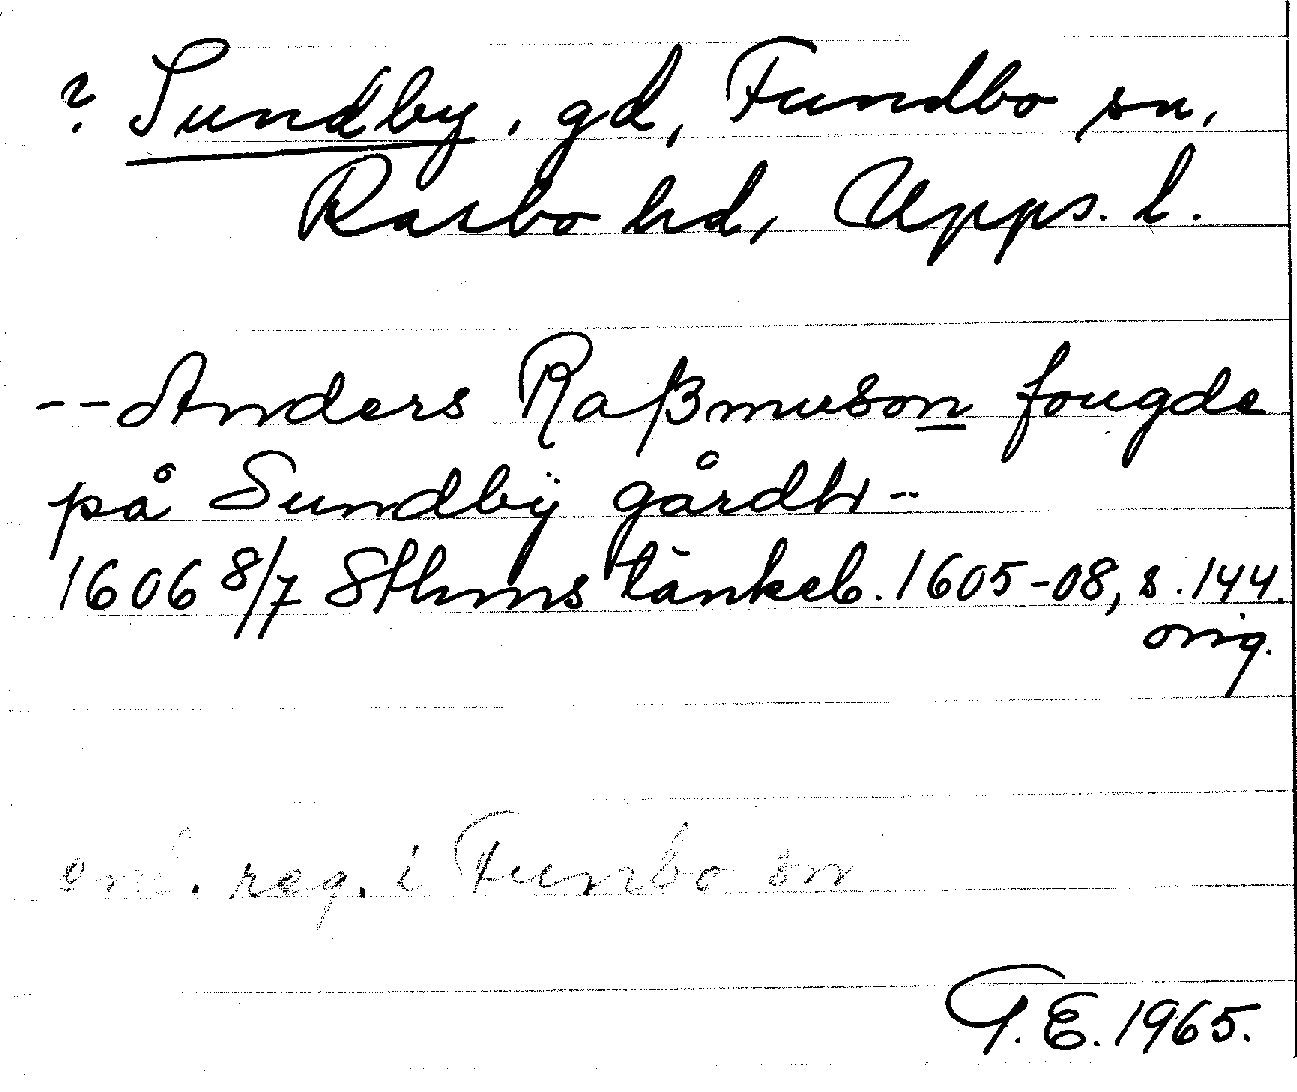 ? Sundby, gd, Fundbo sn,
Rasbo hd, Upps. l.
--Anders Raßmuson fougde
på Sundbÿ gårdh--
1606 8/7 Sthms tänkeb. 1605-08, s. 144.
orig.
enl. reg. i Funbo sn
T.E. 1965.